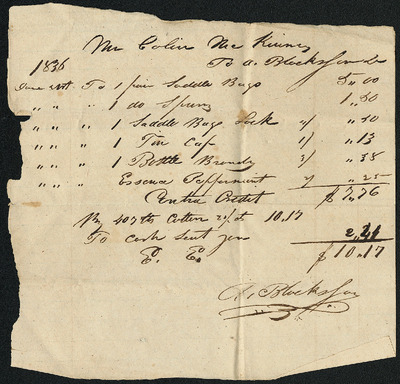 Mr Colin McKinney
1836 To A. Blocksom Dr
June To 1 pair Saddle Bags 5,,00
,, ,, ,, 1 do Spurs 1,,50
,, ,, ,, 1 Saddle Bags Lock ,,50
,, ,, ,, 1 Tin Cup ,,13
,, ,, ,, 1 Bottle Brandy 3/ ,,38
,, ,, Essence Peppermint ,,25
Contra Credit $7,,76
By 407 lbs Cotton 10,17
To cash sent you 2,41
E. E. $10,,17
A. Blocksom